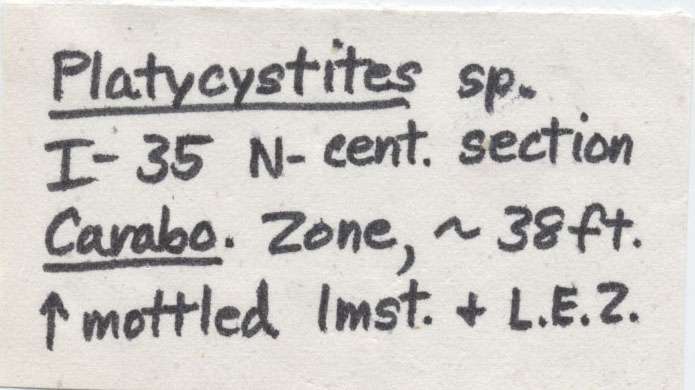 Platycystites sp.
I-35 N-cent. section
Carabo. Zone, ~ 38ft.
↑ mottled lmst. + L.E.Z.